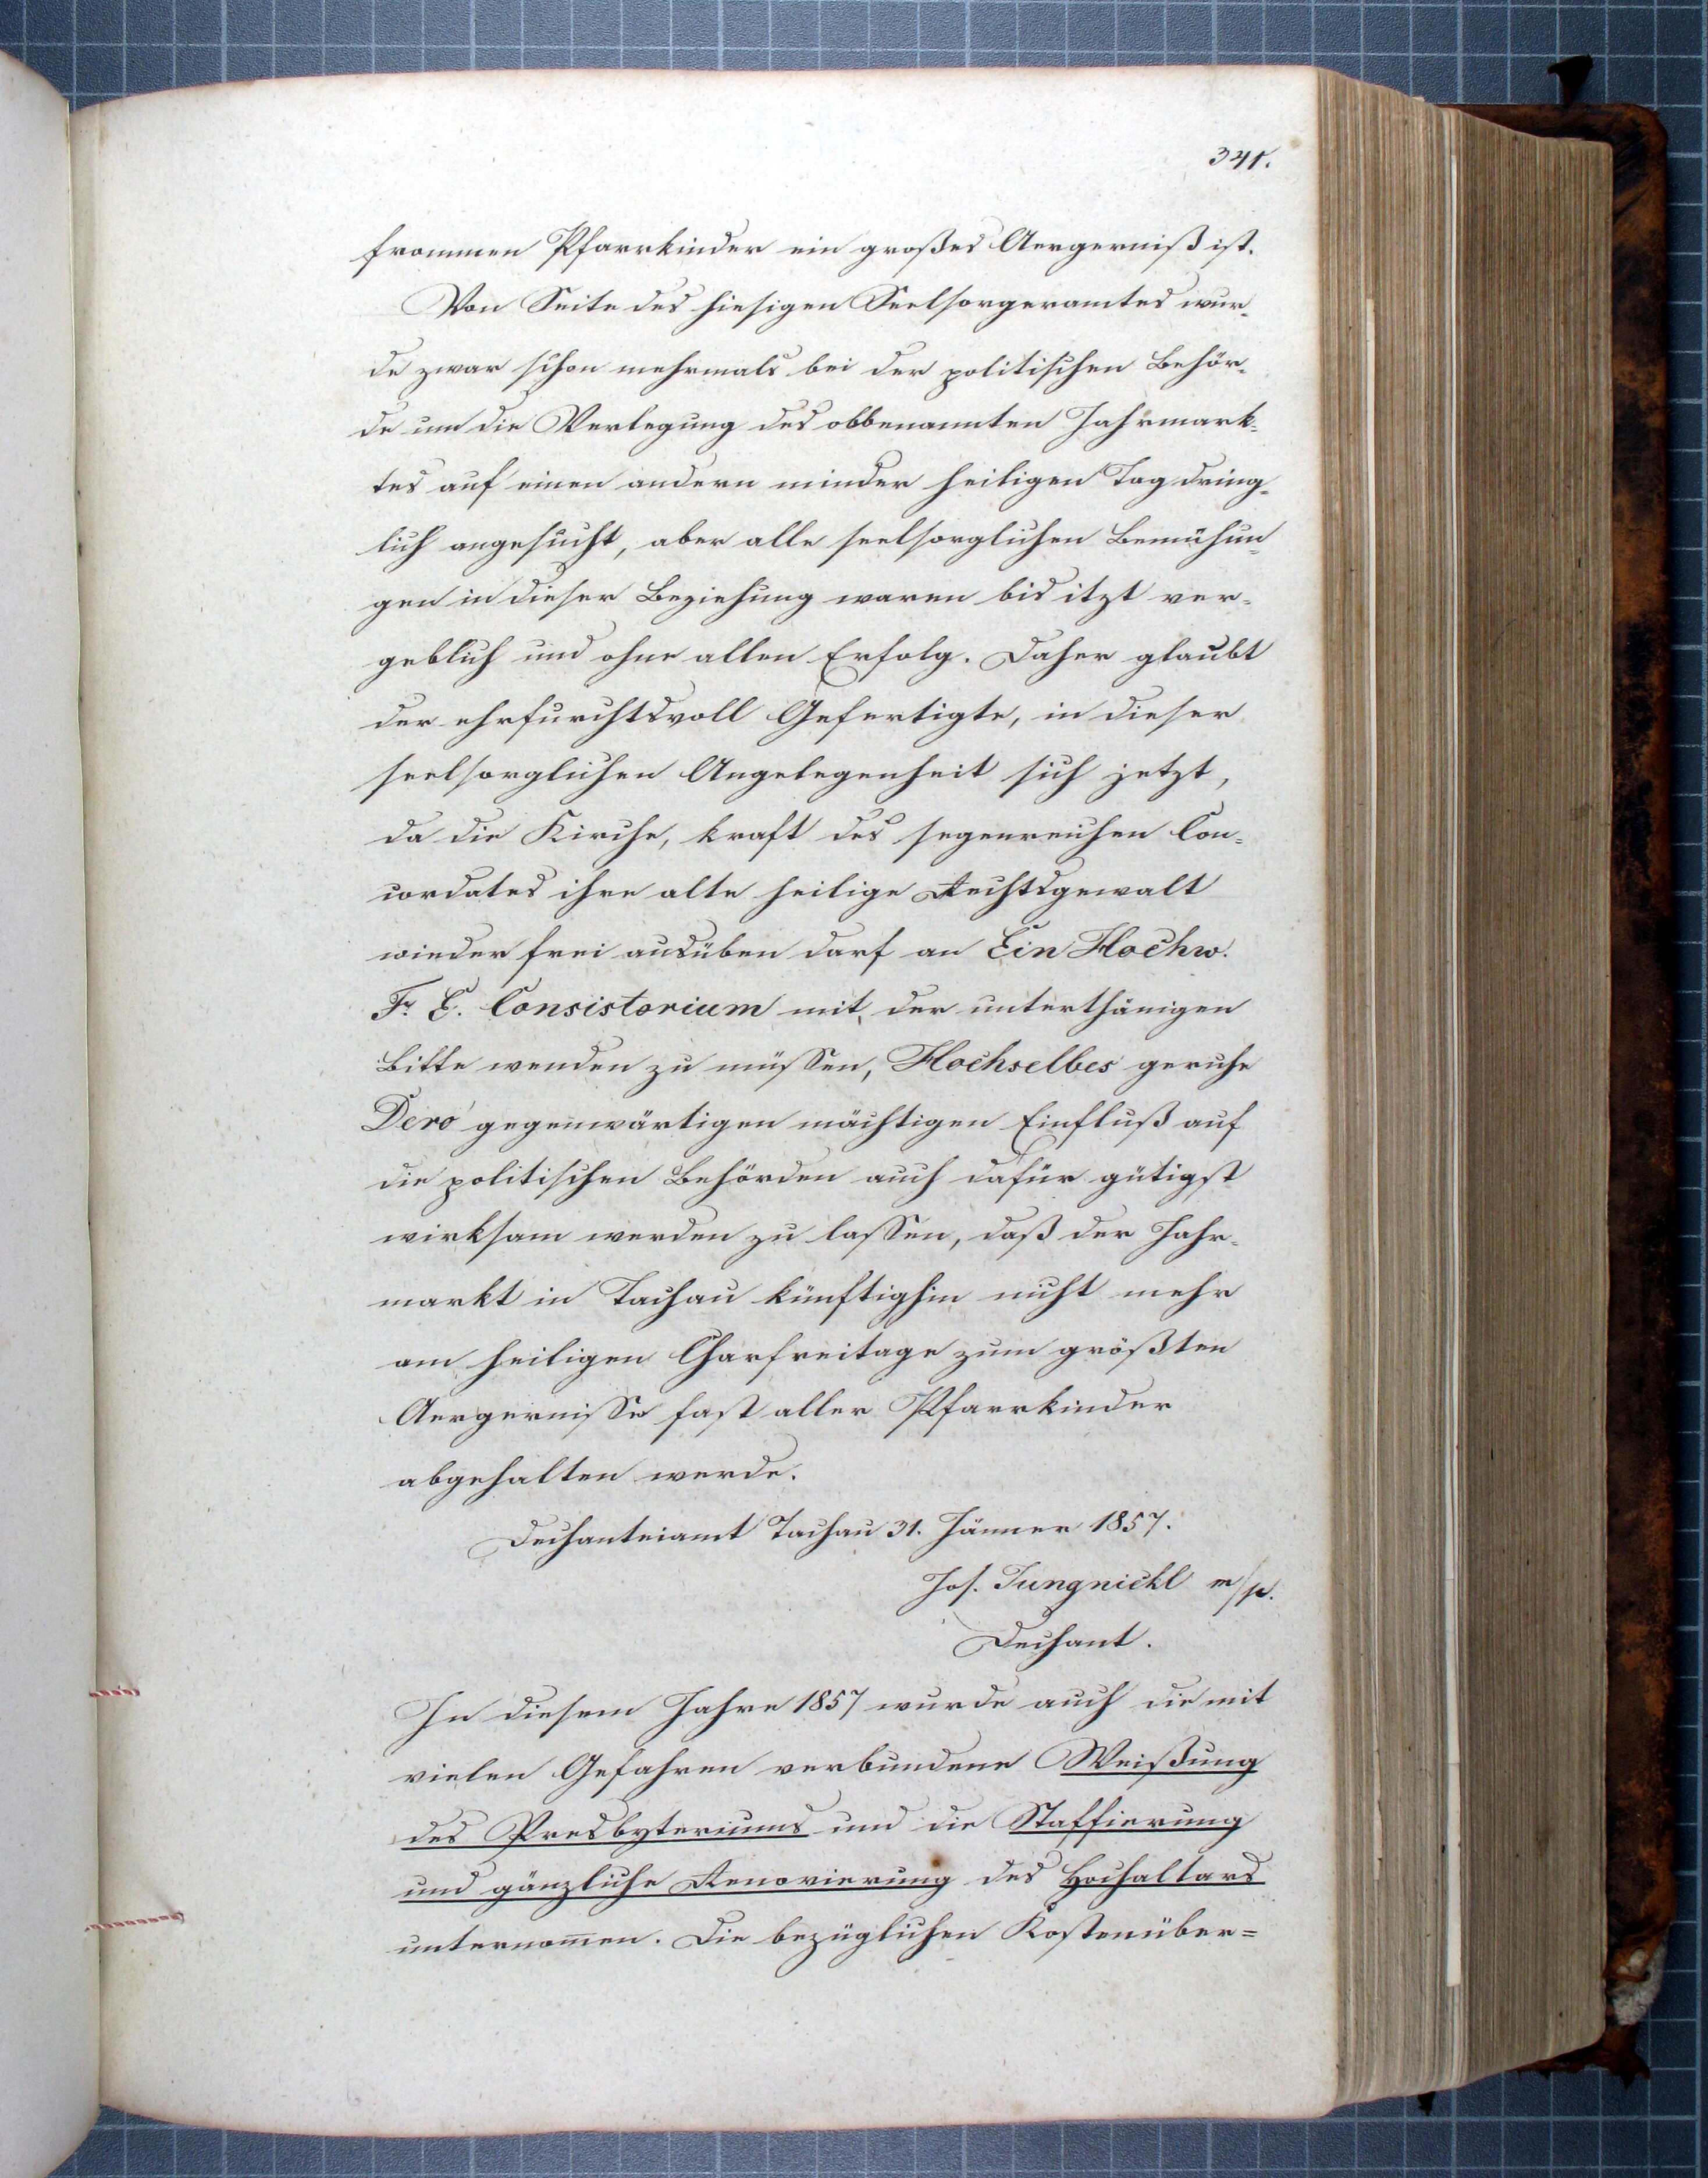 341.
frommen Pfarrkinder ein großes Aergerniß ist.
Von Seite des hiesigen Seelsorgeramtes wur-
de zwar schon mehrmals bei der politischen Behör-
de um die Verlegung des obbenannten Jahrmark-
tes auf einen andern minder heiligen Tag dring-
lich angesucht, aber alle seelsorglichen Bemühun-
gen in dieser Beziehung waren bis itzt ver-
geblich und ohne allen Erfolg. Daher glaubt
der ehrfurchtsvoll Gefertigte, in dieser
seelsorglichen Angelegenheit sich jetzt,
da die Kirche, kraft des segenreichen Con-
cordates ihre alte heilige Rechtsgewalt
wieder frei ausüben darf an Ein Hochw.
F. E. Consistorium mit der unterthänigen
Bitte wenden zu müssen, Hochselbes geruhe
Dero gegenwärtigen mächtigen Einfluß auf
die politischen Behörden auch dafür gütigst
wirksam werden zu lassen, daß der Jahr-
markt in Tachau künftighin nicht mehr
am heiligen Charfreitage zum größten
Aergernisse fast aller Pfarrkinder
abgehalten werde.
Dechanteiamt Tachau 31. Jänner 1857.
Jos. Jungnickl m/p.
Dechant.
In diesem Jahre 1857 wurde auch die mit
vielen Gefahren verbundene Weißung
des Presbyteriums und die Staffierung
und gänzliche Renovierung des Hochaltars
unternom̄en. Die bezüglichen Kostenüber=